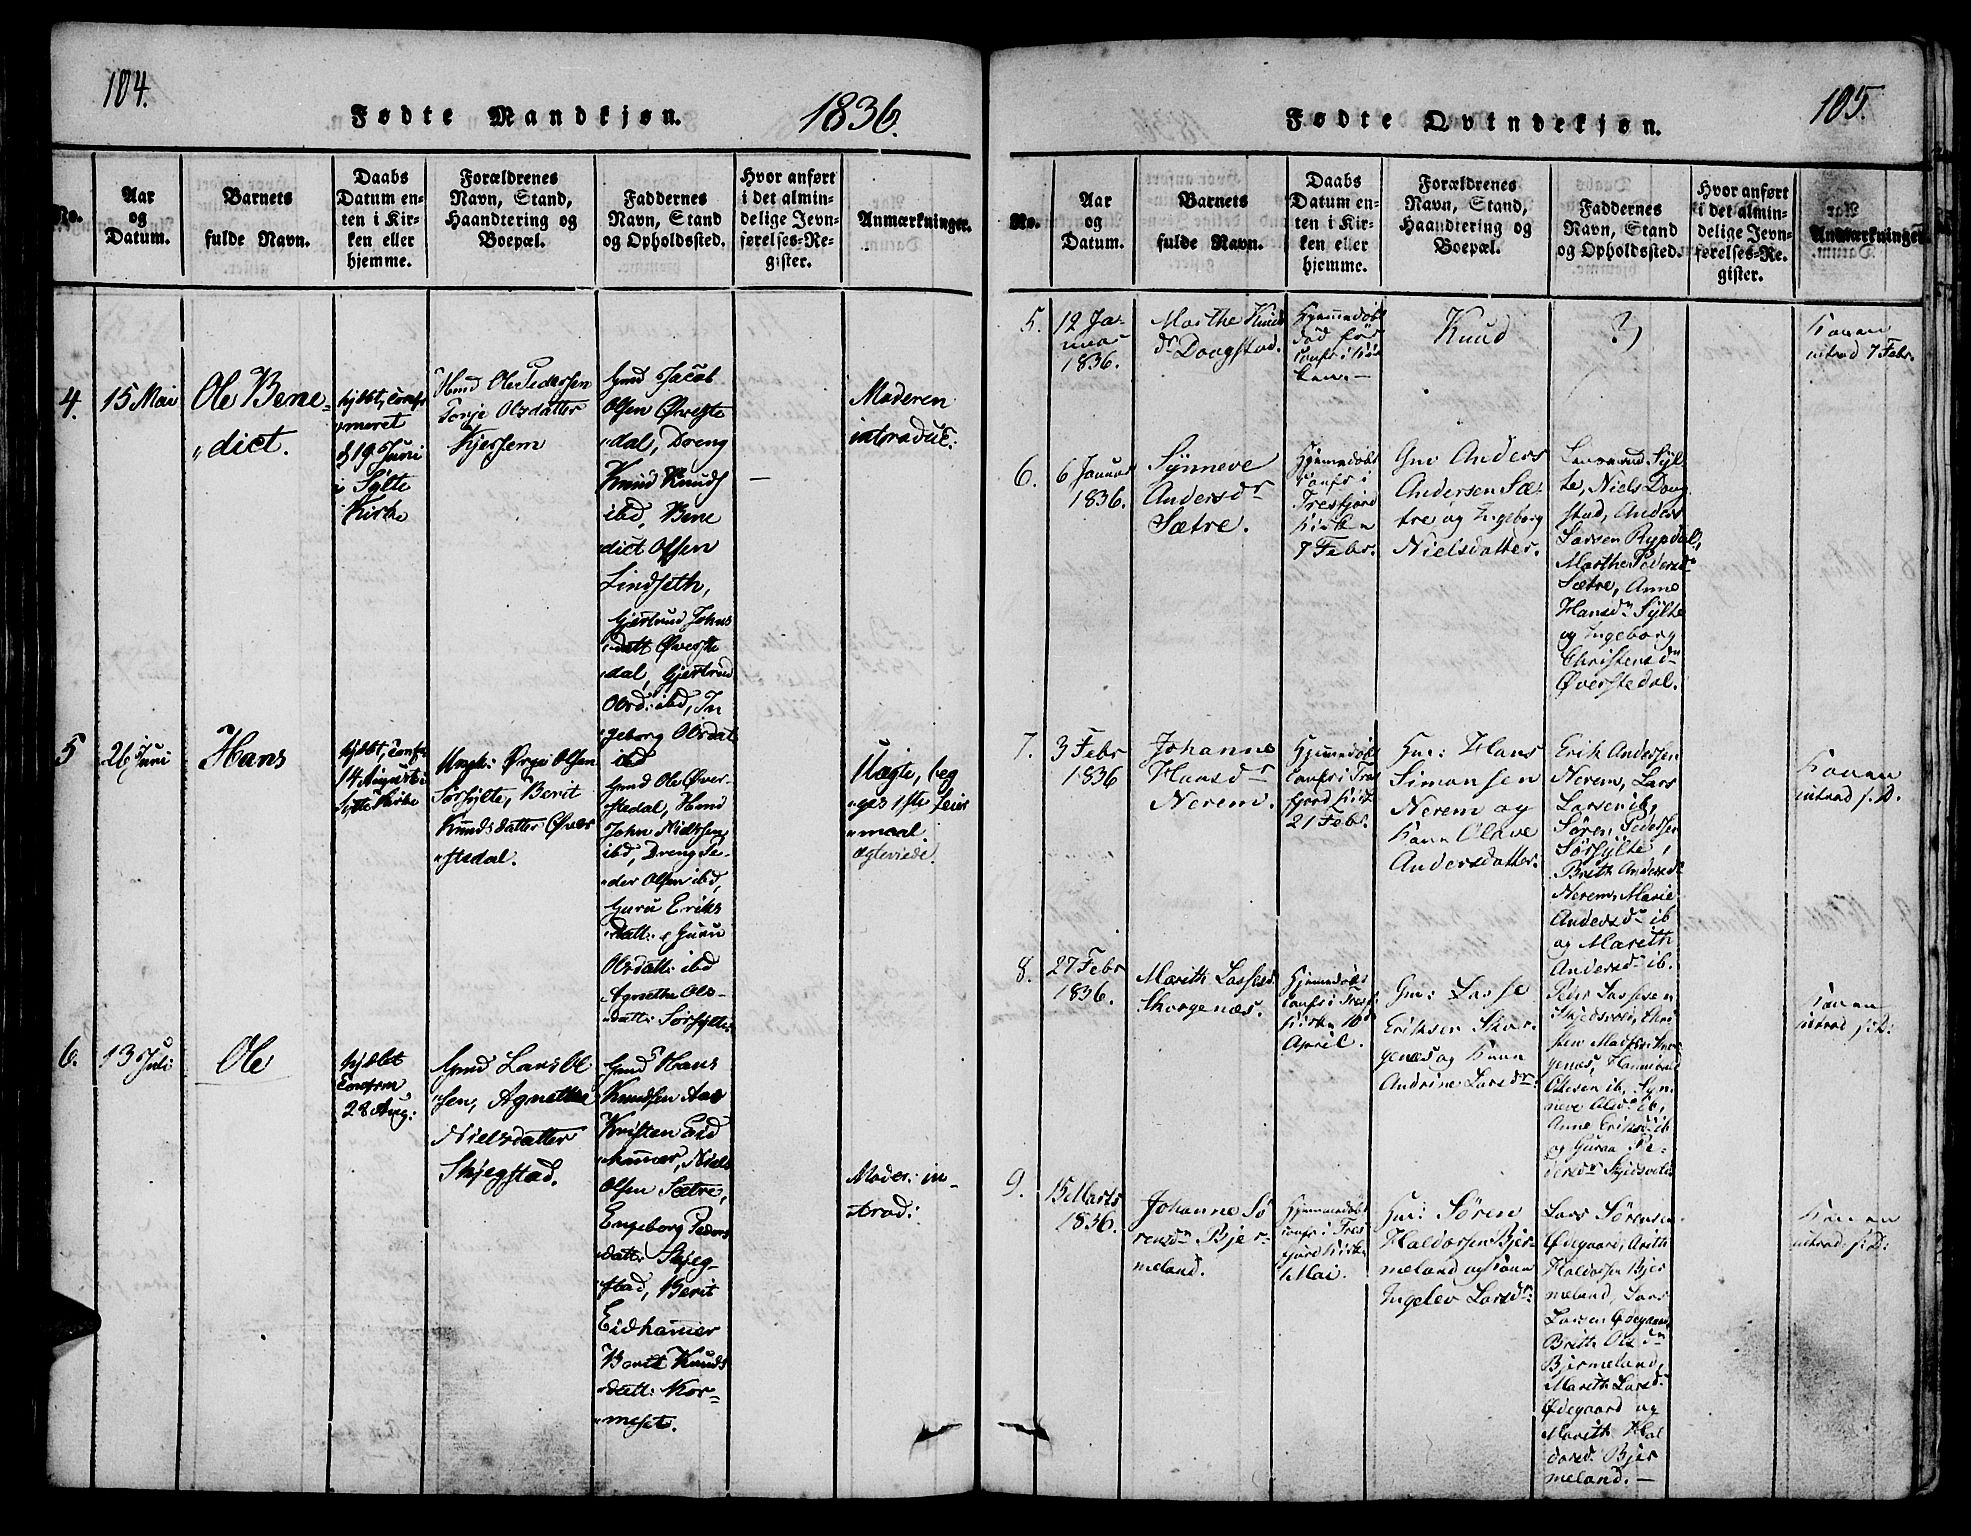 104.
Fødte Mandkjøn.
1836.
No.
Aar
og
Datum.
Barnets
fulde Navn.
Daabs
Datum en-
ten i Kir-
ken eller
hjemme.
Forældrenes
Navn, Stand,
Haandtering og
Boepæl.
Faddernes
Navn, Stand
og Opholdssted.
Hvor anført
i det almin-
delige Jevn-
førelses-Re-
gister.
Anmærkninger.
4.
15 Mai
Ole Bene-
"dict.
hjdbt, Confir
"meret
d 19 Juni
i Sylte
Kirke
Huusmd Ole Pedersen
Tonje Olsdatter
Kjersem
Gmd Jacob
Olsen Øverste
"dal, Dreng
Knud Knuds
ibd, Bene
"dict Olsen
Lindseth,
Gjertrud Johns
"datt Øverste
"dal, Gjertrud
Olsd: ibd, In
"geborg Olsdat
ibd
Moderen
introduc:
5
26 Juni
Hans
hjdbt, Confir
14 August i
Sylte Kirke
Ungk: Ole Olsen
Sørsylte, Berit
Knudsdatter Øver
"stedal.
Gmd Ole Øver-
"stedal, Huusmd
John Nielsen
ibd, Dreng Pe-
"der Olsen ibd,
Guru Eriks
"datt: & Guru
Olsdatt: ibd
Agnethe Ols-
"datt: Sørsylte
Uægte, beg
"ges 1ste leier
"maal.
Ægteviede.
6.
13 Juli
Ole
hjdbt
Confirm
28 Aug:
Gmd Lars Ol
"sen, Agnethe
Nielsdatter
Skjegstad.
Gmd Hans
Knudsen Aas
Kristen Eid
"hamer, Niels
Olsen Sætre,
Engeborg Peders
"datter Skjeg-
"stad, Berit
Eidhamer
Berit Knuds
"datt: Kor-
"meset.
Moder: in-
"trod:
105.
Fødte Qvindekjøn.
No.
Aar
og
Datum.
Barnets
fulde Navn.
Daabs
Datum en-
ten i Kir-
ken eller
hjemme.
Forældrenes
Navn, Stand,
Haandtering og
Boepæl.
Faddernes
Navn, Stand
og Opholdssted.
Hvor anført
i det almin-
delige Jevn-
førelses-Re-
gister.
Anmærkninger.
5.
12 Ja-
nuar
1836.
Marthe Knuds
dr Dougstad.
Hjemmedøbt
død før
Confr i Kir
ken.—
Knud
?)
Konen
introd 7 Febr.
6.
6 Januar
1836.
Synneve
Andersdr
Sætre.
Hjemmedøbt
Confr i
Tresfjord
Kirke
7 Febr.
Gm Anders
Andersen Sæ-
tre og Ingeborg
Nielsdatter.
Syl-
te, Niels Doug
stad, Anders
Larsen Rypdal,
Marthe Pedersdr
Sætre, Anne
Hansdr Sylte
og Ingeborg
Christensdr
Øverstedal.
7.
3 Febr
1836
Johanne
Hansdr
Nerem.
Hjemmedøbt
Confr i Tres
fjord Kirke
21 Febr.
Gm: Hans
Simonsen
Nerem og
Kone Olave
Andersdatter.
Erik Andersen
Nerem, Lars
Larsen ib,
Søren Pedersen
Sørsylte,
Brith Andersdr
Nerem, Marie
Andersdr ib
og Marith
Andersdr ib.
Konen
introd s. D.
8.
27 Febr
1836.
Marith Lassesdr
Skorgenæs.
Hjemmedøbt
Confr i Tresf.
Kirke 10de
April.
Gm: Lasse
Eriksen Skor-
genæs og Kone
Andrine Larsdr.
Peter Lassesen
Skjedsvoll, Chri
sten Madsen Skor
genæs,
Ottesen ib, Syn
neve Olsdr ib,
Anne Eriksdr ib
og Guraa Pe-
dersdr
Konen
introd s. D.
9.
15 Marts
1836.
Johanne Sø
rensdr Bjer-
meland.
Hjemmedøbt
Confr i Tres
fjord Kirke
1 Mai.
Gm: Søren
Haldorsen Bjer-
meland og Kone
Ingelev Larsdr.
Lars Sørensen
Ødegaard, Arith
Haldorsen Bjer
meland, Lars
Larsen Ødegaard,
Brith Olsdr
Bjermeland,
Marith Larsdr
Ødegaard og
Marith Hal
dorsd. Bjer
meland.—
Konen
introd s. D.